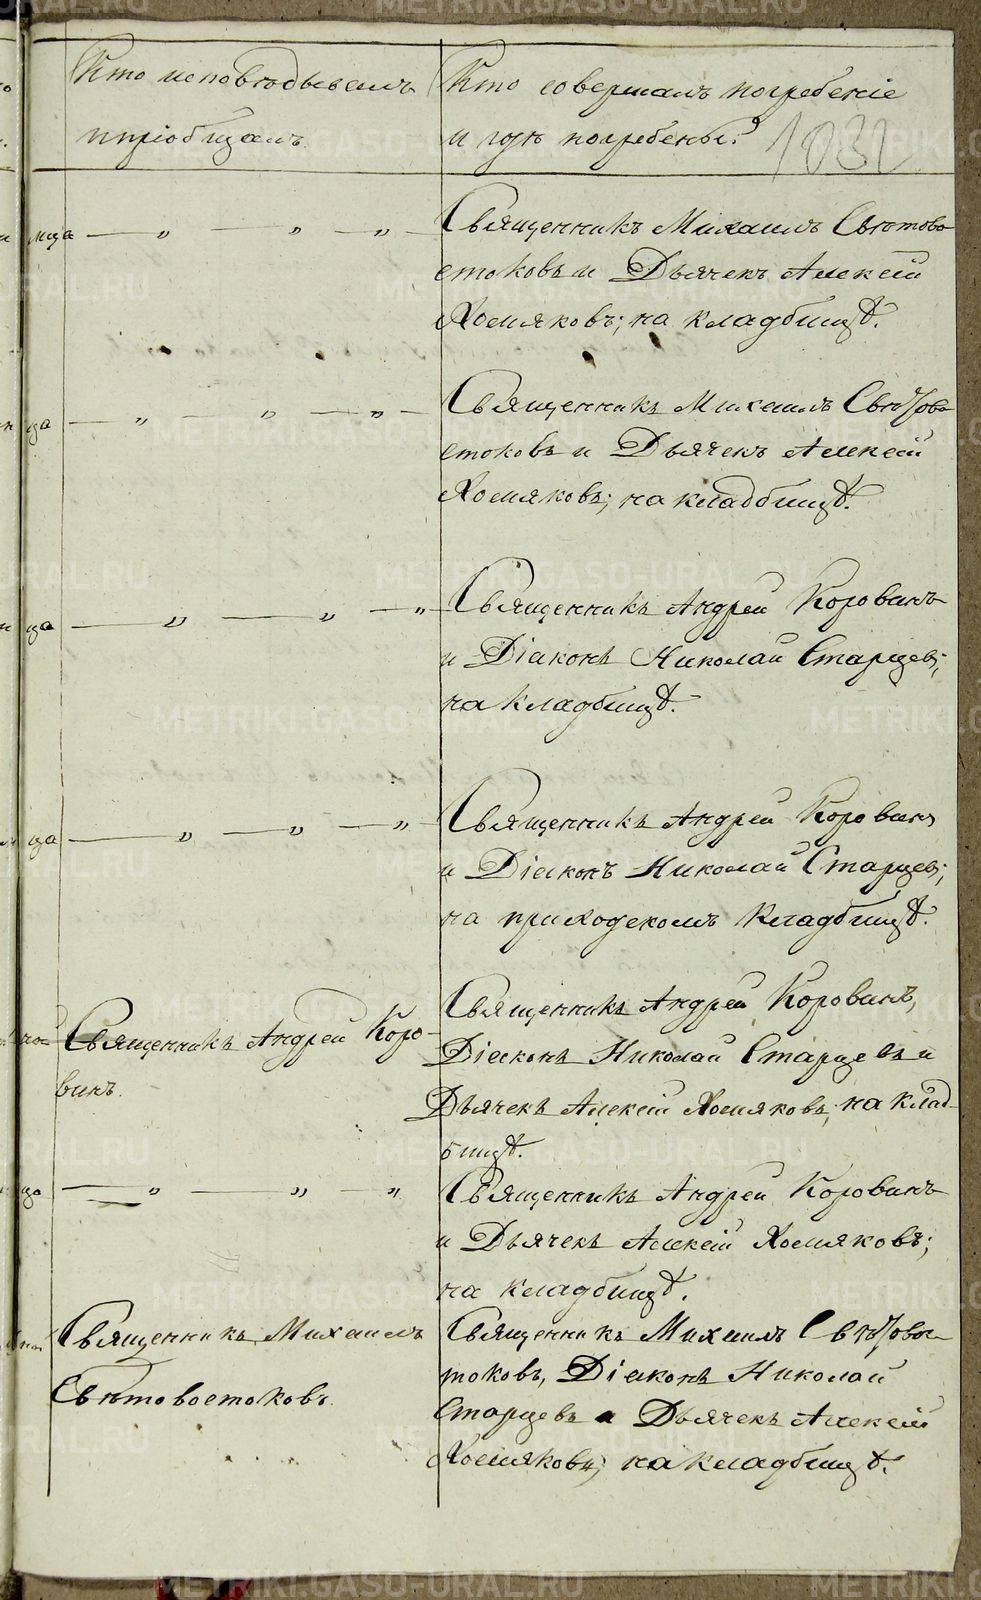 Кто исповѣдывалъ
и пріобщалъ
Кто совершалъ погребеніе
и гдѣ погребены?
1032
мца — „ — „ — „ —
Священникъ Михаилъ Свѣтово-
стоковъ и Дьячекъ Алексѣй
Хомяковъ; на кладбищѣ.
ца — „ — „ — „ —
Священникъ Михаилъ Свѣтово-
стоковъ и Дьячекъ Алексѣй
Хомяковъ; на кладбищѣ.
ца — „ — „ — „
Священникъ Андрей Коровинъ
и Діаконъ Николай Старцевъ;
на кладбищѣ.
ца — „ — „ — „
Священникъ Андрей Коровинъ
и Діаконъ Николай Старцевъ;
на приходскомъ кладбищѣ.
Священникъ Андрей Коро-
винъ.
Священникъ Андрей Коровинъ,
Діаконъ Николай Старцевъ и
Дьячекъ Алексѣй Хомяковъ; на клад-
бищѣ.
ца — „ — „ — „
Священникъ Андрей Коровинъ
и Дьячекъ Алексѣй Хомяковъ;
на кладбищѣ.
Священникъ Михаилъ
Свѣтовостоковъ.
Священникъ Михаилъ Свѣтовос-
токовъ, Діаконъ Николай
Старцевъ и Дьячекъ Алексѣй
Хомяковъ; на кладбищѣ.
METRIKI.GASO-URAL.RU